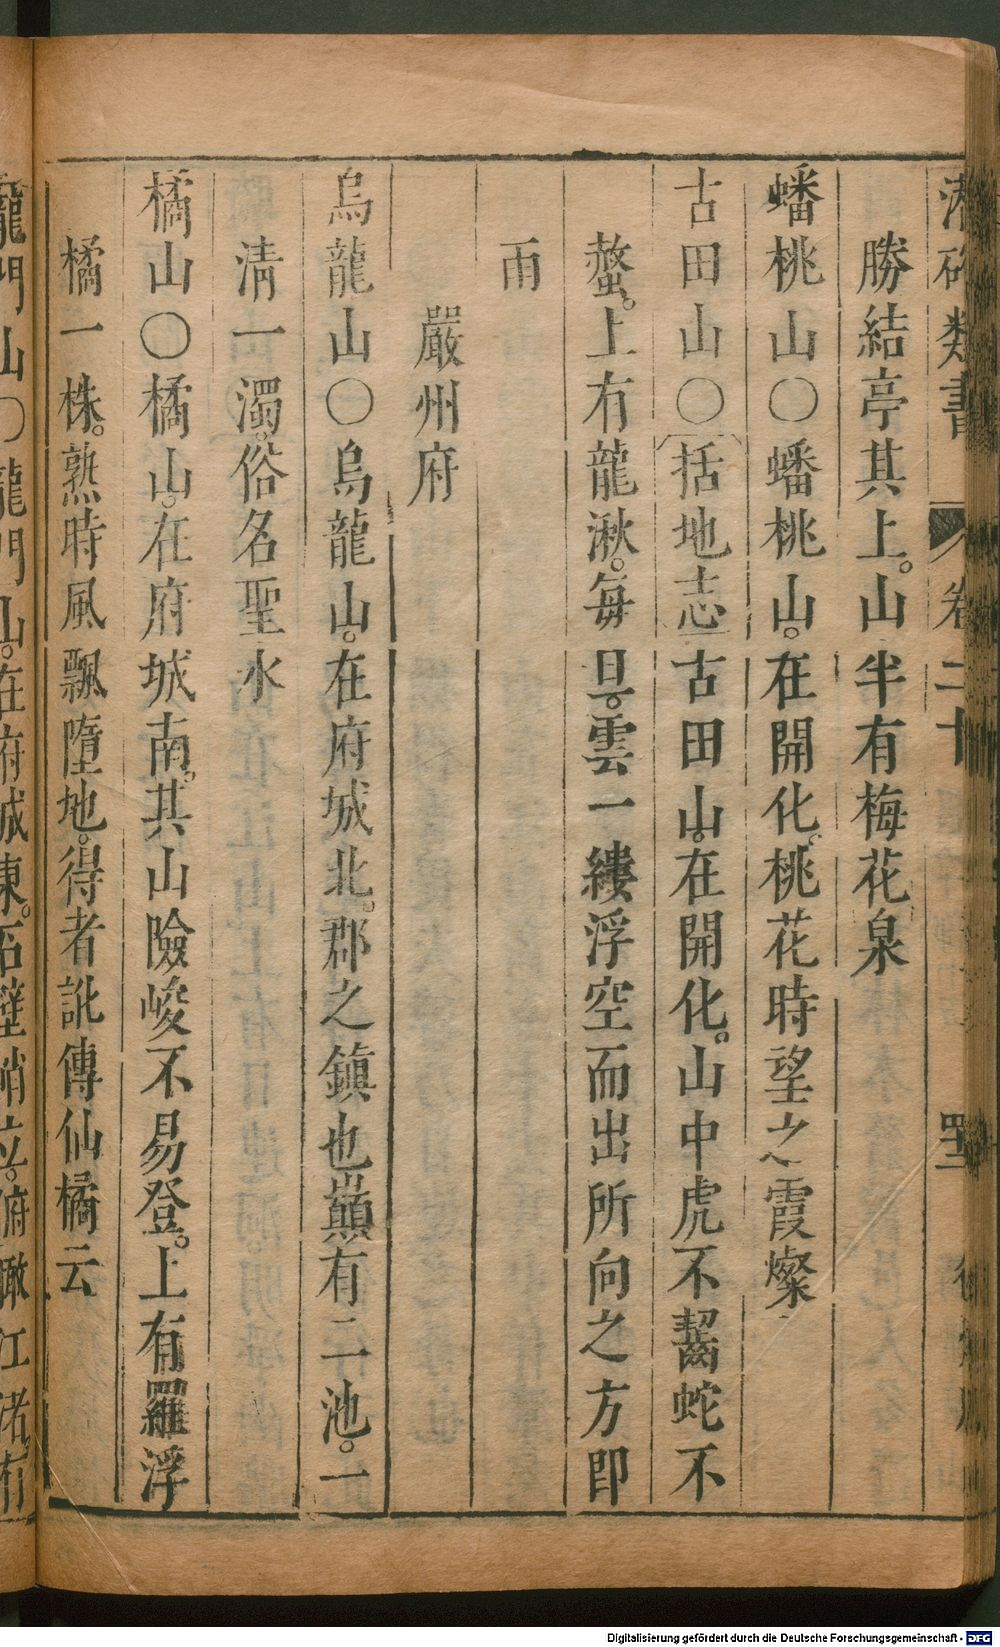 潛確類書　卷二十
勝結亭其上。山半有梅花泉
蟠桃山〇蟠桃山。在開化。桃花時望之霞燦
古田山〇括地志古田山。在開化。山中虎不齧蛇不
螫。上有龍湫。每旦。雲一縷浮空而出所向之方即
雨
嚴州府
烏龍山〇烏龍山。在府城北。郡之鎮也巔有二池。一
清一濁。俗名聖水
橘山〇橘山。在府城南。其山險峻不易登。上有羅浮
橘一株。熟時風飄墮地。得者訛傳仙橘云
龍門山〇龍門山。在府城東。石壁峭立。俯瞰江渚。有
Digitalisierung gefördert durch die Deutsche Forschungsgemeinschaft - DFG